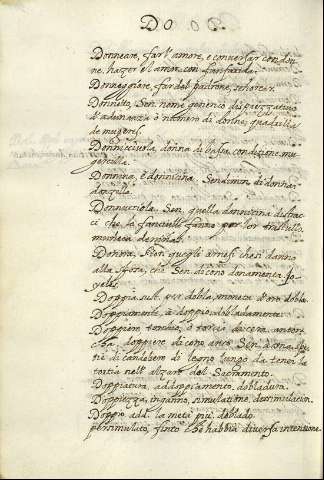 DO
Donneare, far l'amore, e conversar con don
ne. hazer el amor con
Donneggiare, far del padrone, señorear.
Donnetto, Sen. nome generico dispezzativo
d'adunanza ò numero di donne, quadrilla
de mugeres.
Donnicciuola, donna di bassa condizione mu
gercilla.
Donnina, e donnicina. Sen. dimin. di donna.
Donnucciola. Sen. quella donnicina di strac
ci che le fanciulle fanno per lor trastullo,
muñeca de niñas.
Donora, Fior. quegli arnesi che si danno
alla sposa, che Sen. dicono donamenta. jo
yeles.
Doppia sust. per dobla, moneta d'oro. dobla.
Doppiamente, à doppio. dobladamente.
Doppiere torchio, ò torcia di cera. antor
cha.
tie di candeliere di legno lungo da tener la
torcia nell'alzare del Sacramento.
Doppiatura, addoppiamento, dobladura.
Doppiezza, inganno, simulatione, dissimulacion.
Doppio add. la metà più, doblado.
per simulato, finto che habbia diversa intenzione